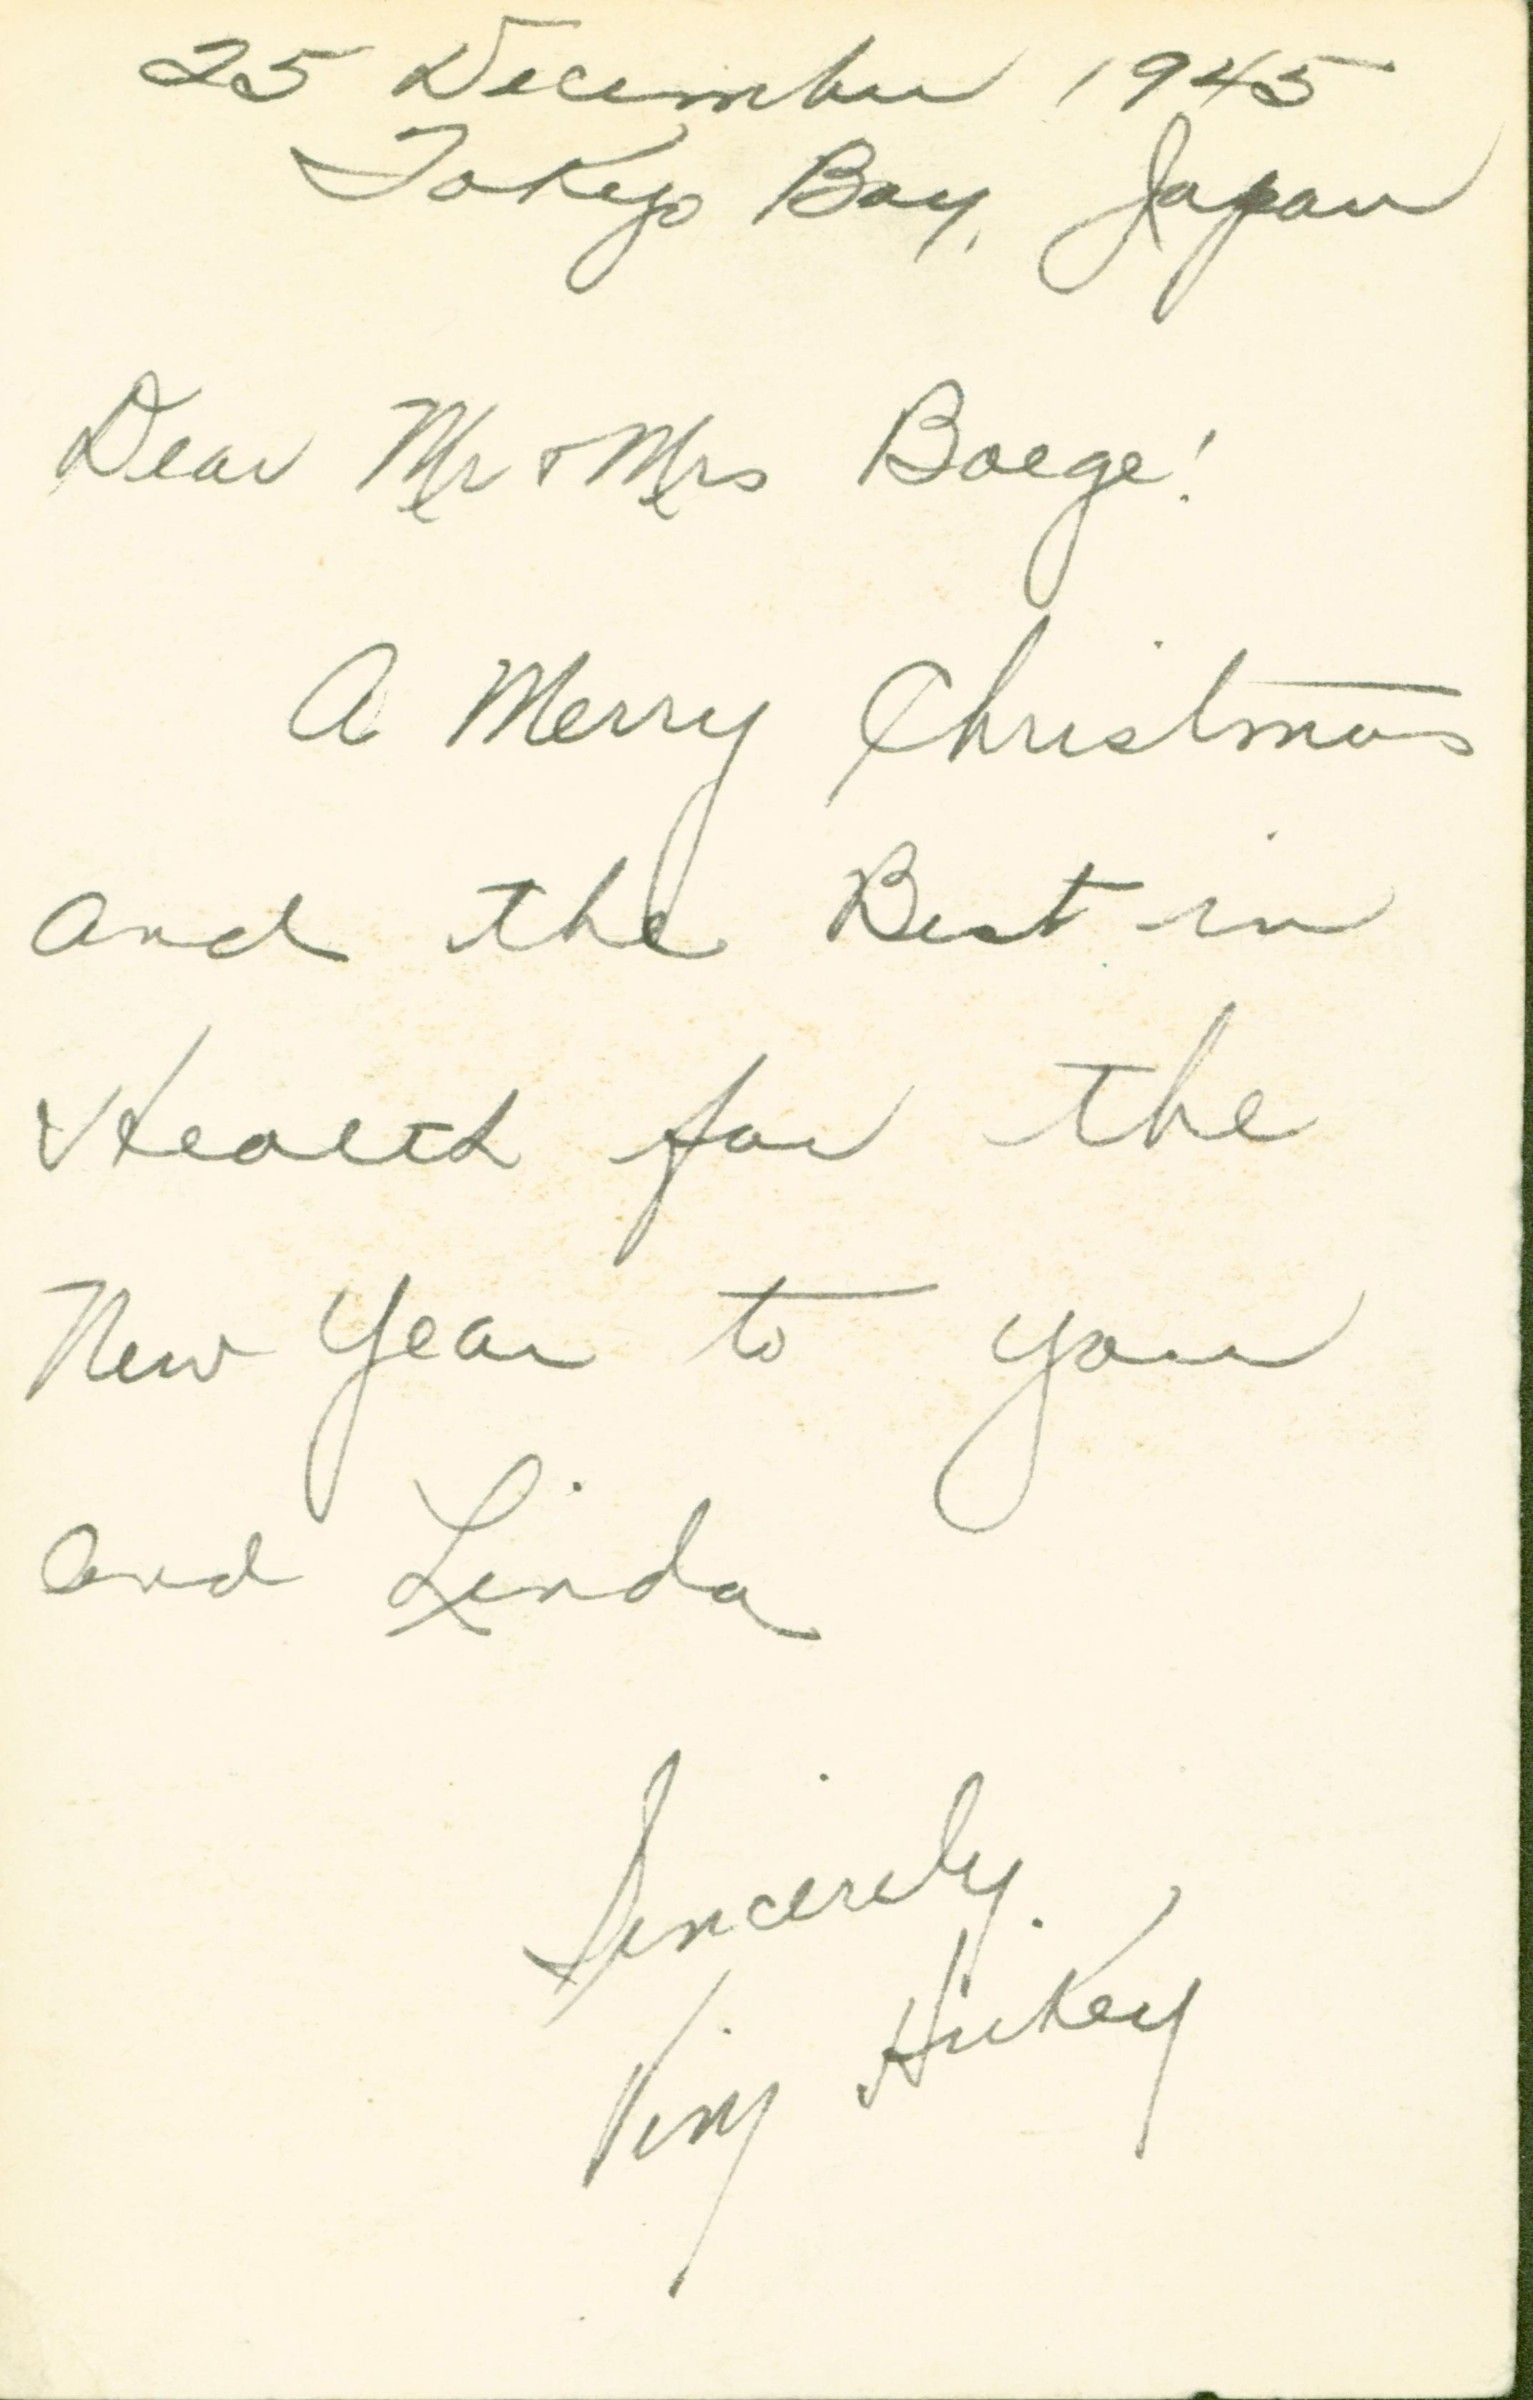 25 December 1945
Tokyo Bay, Japan
Dear Mr & Mrs Boege!
A Merry Christmas
and the Best in
Health for the
New Year to you
and Linda
Sincerely,
Hickey